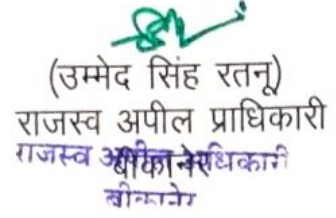 (उम्मेद सिंह रतनू)
राजस्व अपील प्राधिकारी
बीकानेर
राजस्व अपील प्राधिकारी
बीकानेर